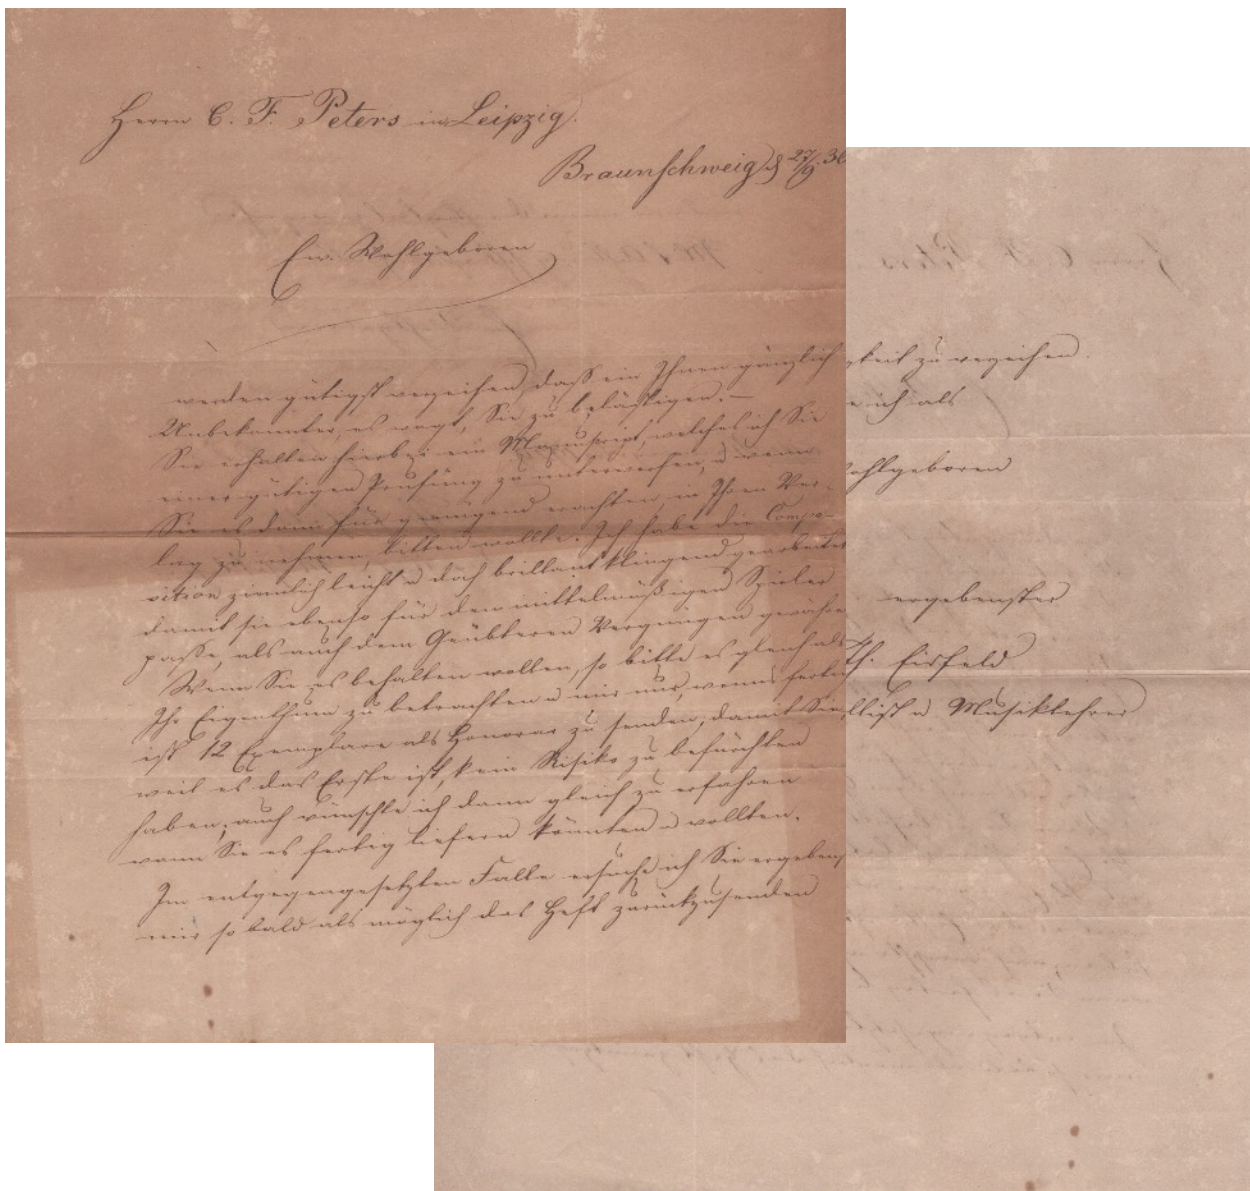 Herrn C. F. Peters in Leipzig.
Braunschweig d 27/9. 36
Ew. Wohlgeboren
werden gütigst verzeihen, dass ein Ihnen gänzlich
Unbekannter, es wagt, Sie zu belästigen. —
Sie erhalten hierbei ein Manuscript, welches ich Sie
einer gütigen Prüfung zu unterwerfen, u wenn
Sie es dann für genügend erachten, in Ihren Ver-
lag zu nehmen, bitten wollte. Ich habe die Compo-
sition ziemlich leicht u doch brillant klingend gearbeitet
damit sie ebenso für den mittelmäßigen Spieler
passe, als auch dem Geübteren Vergnügen gewähre
Wenn Sie es behalten wollen, so bitte es gleich als
Ihr Eigenthum zu betrachten u mir nur, wenns fertig
ist 12 Exemplare als Honorar zu senden, damit Sie
weil es das Erste ist, kein Risiko zu befürchten
haben; auch wünschte ich dann gleich zu erfahren
wann Sie es fertig liefern könnten u wollten.
Im entgegengesetzten Falle ersuche ich Sie ergebens
mir so bald als möglich das Heft zurückzusenden
gkeit zu verzeihen.
e ich als
Wohlgeboren
ergebenster
Th. Eisfeld
llist u Musiklehrer